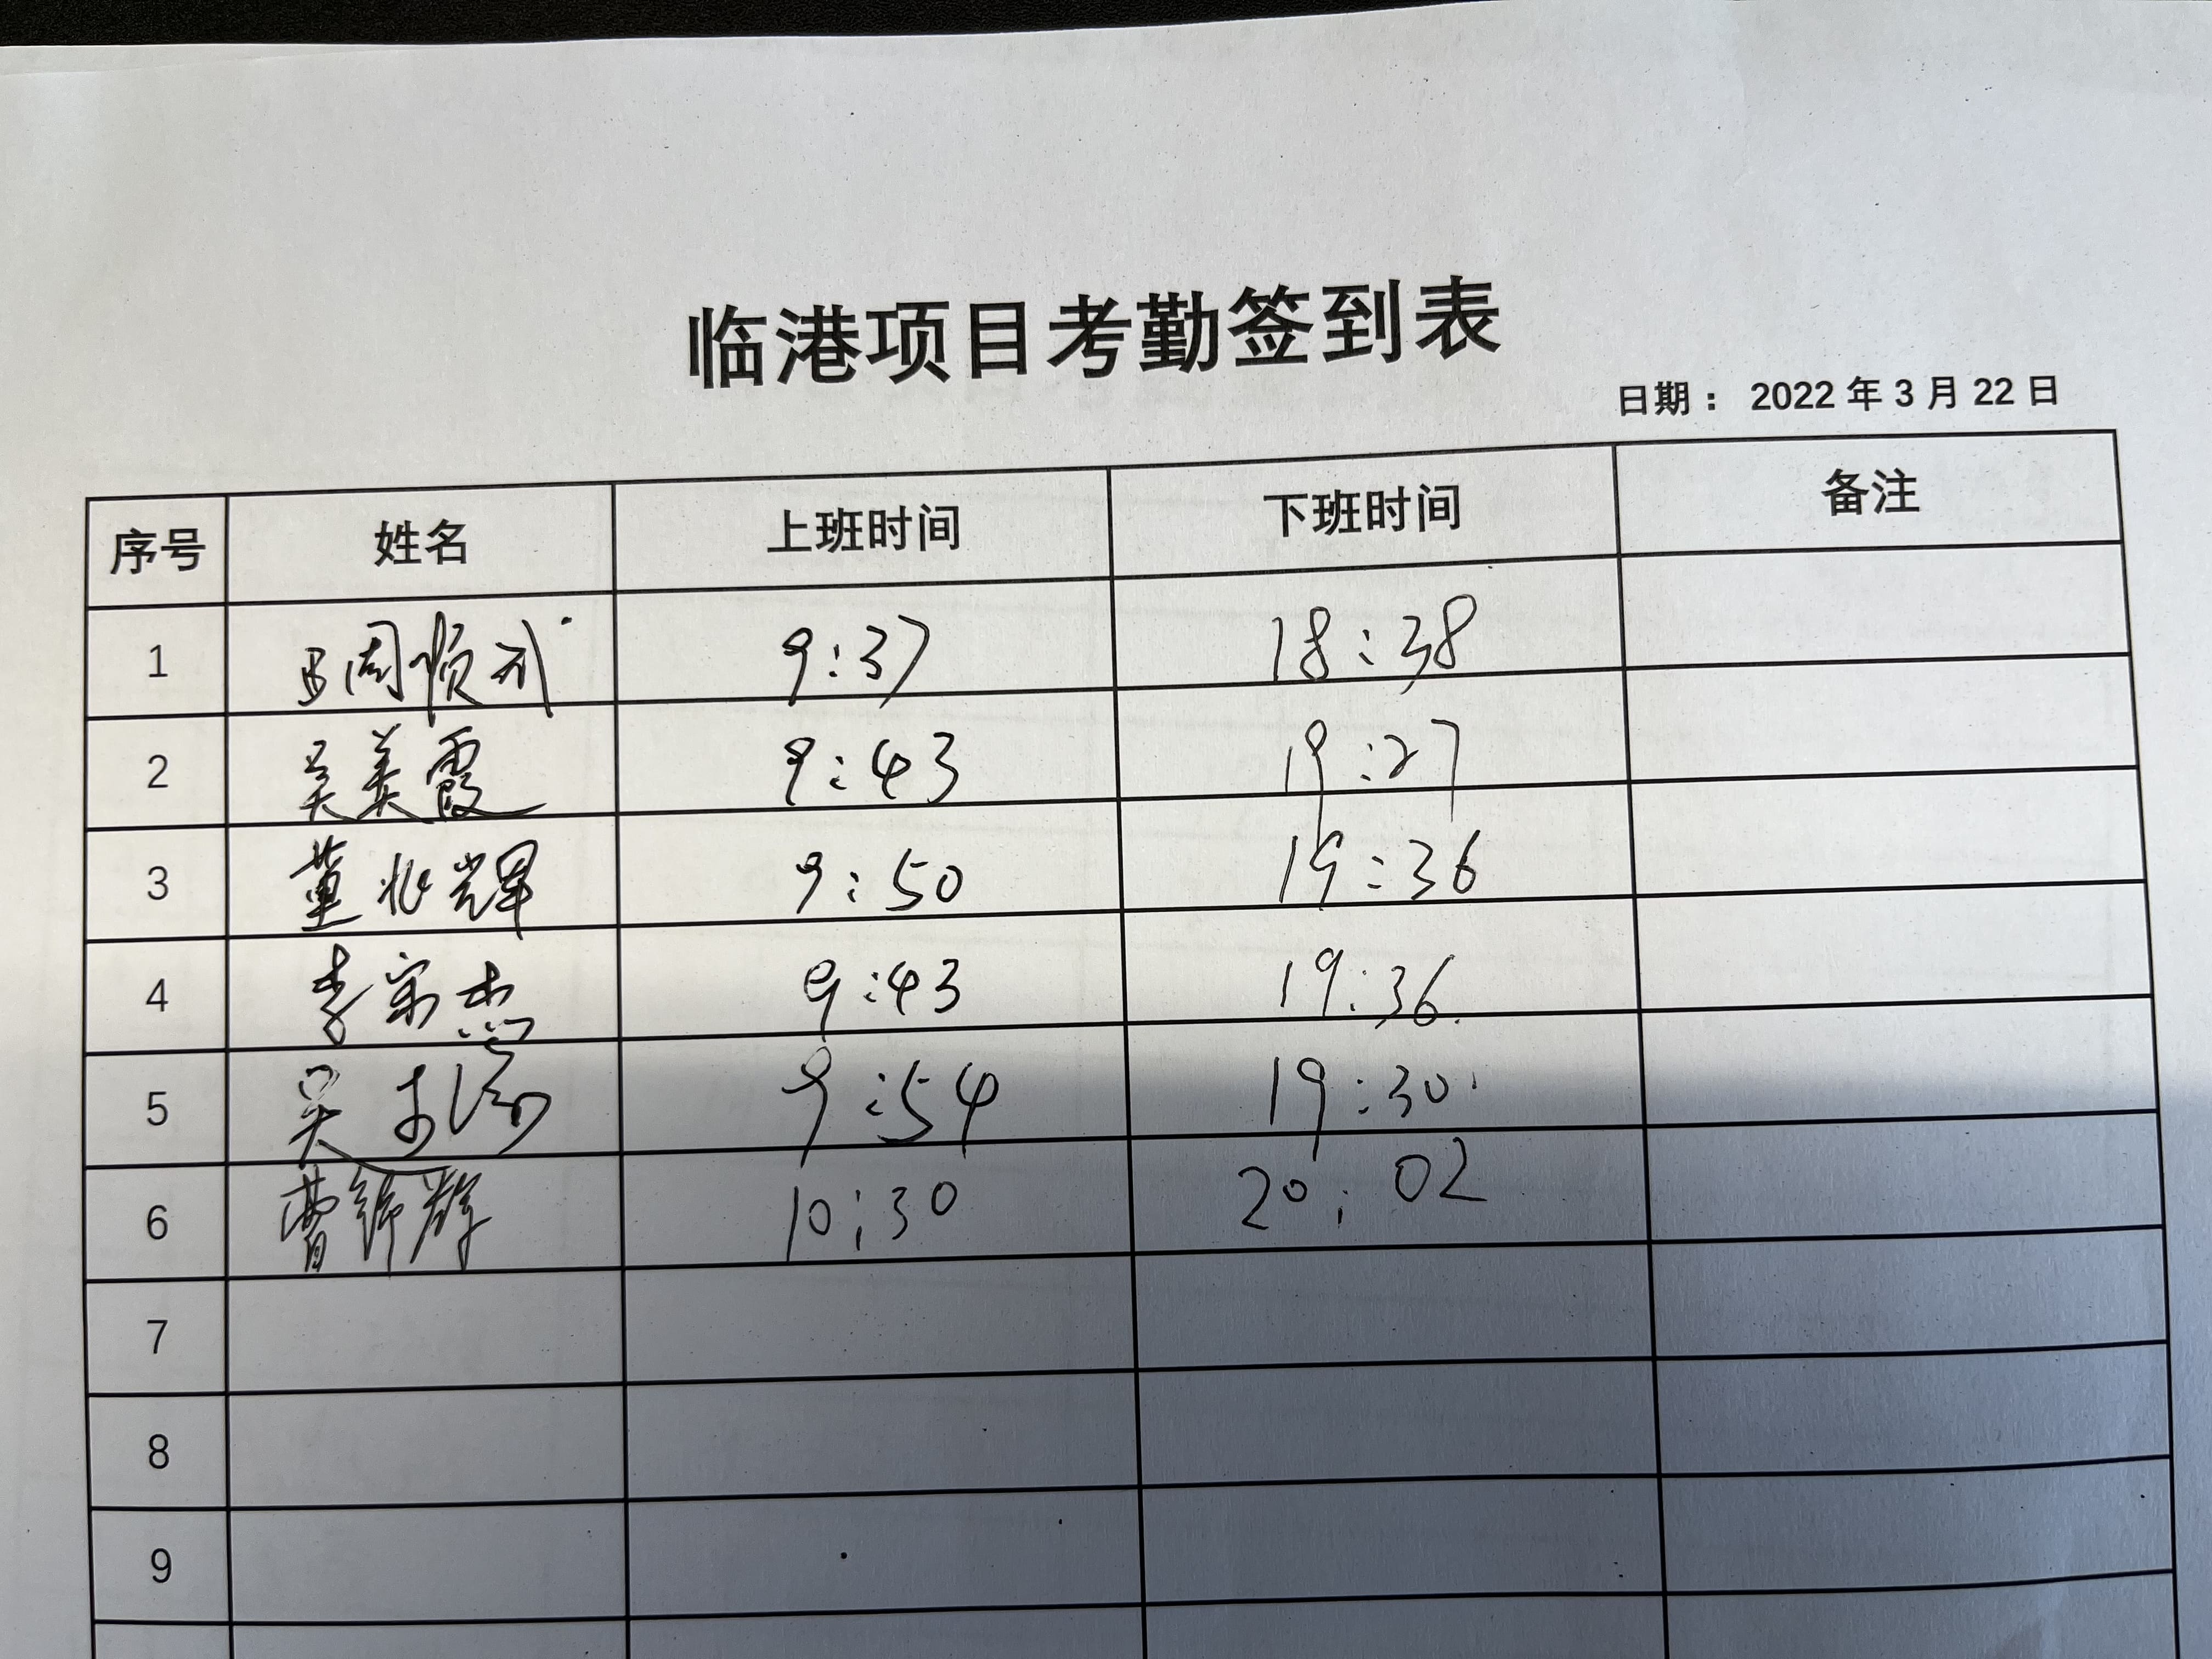 临港项目考勤签到表
日期： 2022 年 3 月 22 日
序号 姓名 上班时间 下班时间 备注
1 周 9:37 18:38
2 吴美霞 9:43 19:27
3 董兆辉 9:50 19:36
4 李宗杰 9:43 19:36
5 吴 9:54 19:30
6 曹锦辉 10:30 20:02
7
8
9